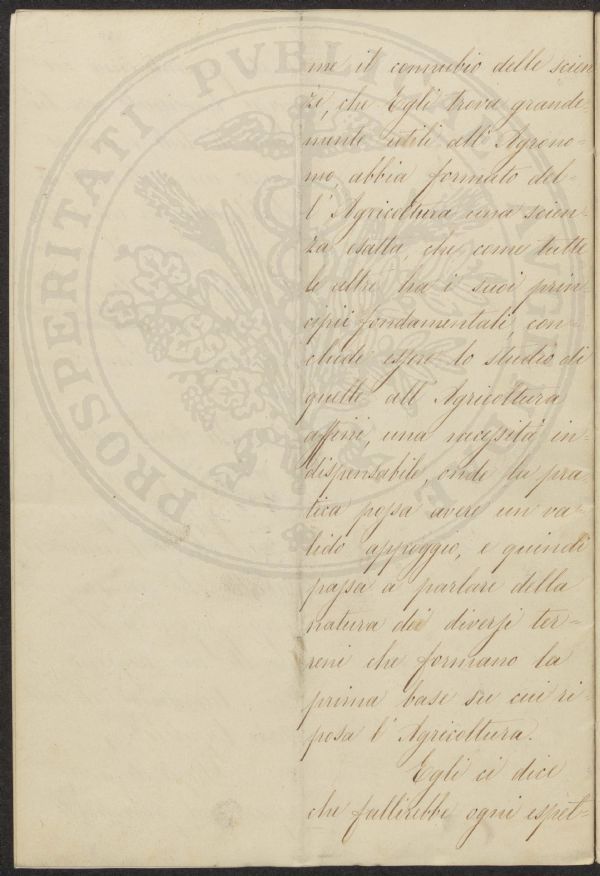 me il connubio delle scien
ze, che Egli trova grande-
mente utili all'Agrono-
mo, abbia formato del-
l'Agricoltura una scien-
za esatta, che, come tutte
le altre ha i suoi prin-
cipii fondamentali, con-
chiude essere lo studio di
quelle all'Agricoltura
affini, una necessità in-
dispensabile, onde la pra-
tica possa avere un va-
lido appoggio, e quindi
passa a parlare della
natura dei diversi ter-
reni che formano la
prima base su cui ri-
posa l'Agricoltura.
Egli ci dice
che fallirebbe ogni espet-
PROSPERITATI PVBLICAE